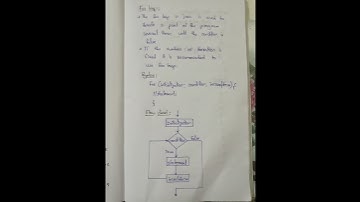 For loop :
• The for loop in java is used to
iterate a part of the program
several times until the condition is
false
• If the number of iteration is
fixed it is recommended to
use for loop.
Syntax:
for (initialization; condition; increment){
// statement
}
Flow chart:
initialization
false
true
statement